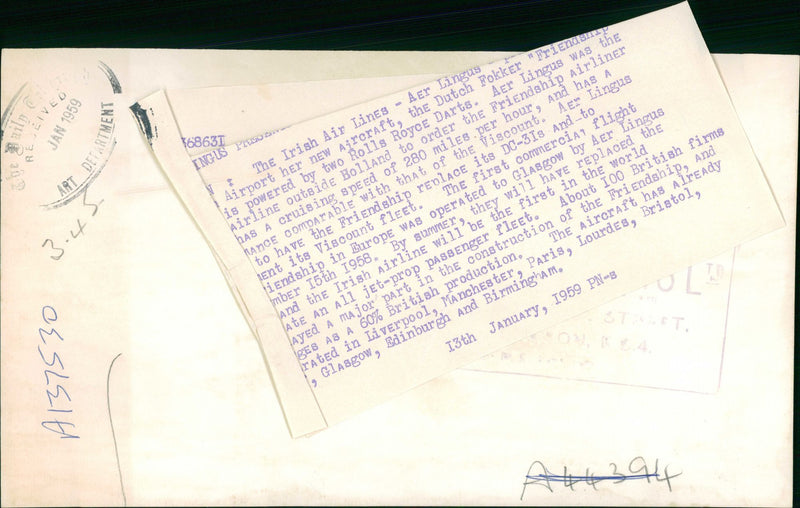 The Daily
RECEIVED
JAN 1959
ART DEPARTMENT
3.45
A137530
368631
INGUS
The Irish Air Lines - Aer Lingus
Airport her new ajrcraft, the Dutch Fokker "Friendship
is powered by two Rolls Royce Darts. Aer Lingus was the
airline outside Holland to order the Friendship Airliner
has a cruising speed of 280 miles per hour, and has a
mance comparable with that of the Viscount. Aer Lingus
to have the Friendship replace its DC-3Is and to
ment its Viscount fleet. The first commercial flight
iendship in Europe was operated to Glasgow by Aer Lingus
mber 15th 1958. By summer, they will have replaced the
and the Irish Airline will be the first in the world
ate an all jet-prop passenger fleet. About 100 British firms
ayed a major part in the construction of the Friendship, and
ges as a 60% British production. The aircraft has already
rated in Liverpool, Manchester, Paris, Lourdes, Bristol,
, Glasgow, Edinburgh and Birmingham.
13th January, 1959 PN-s
STREET,
E.C.4.
A44394